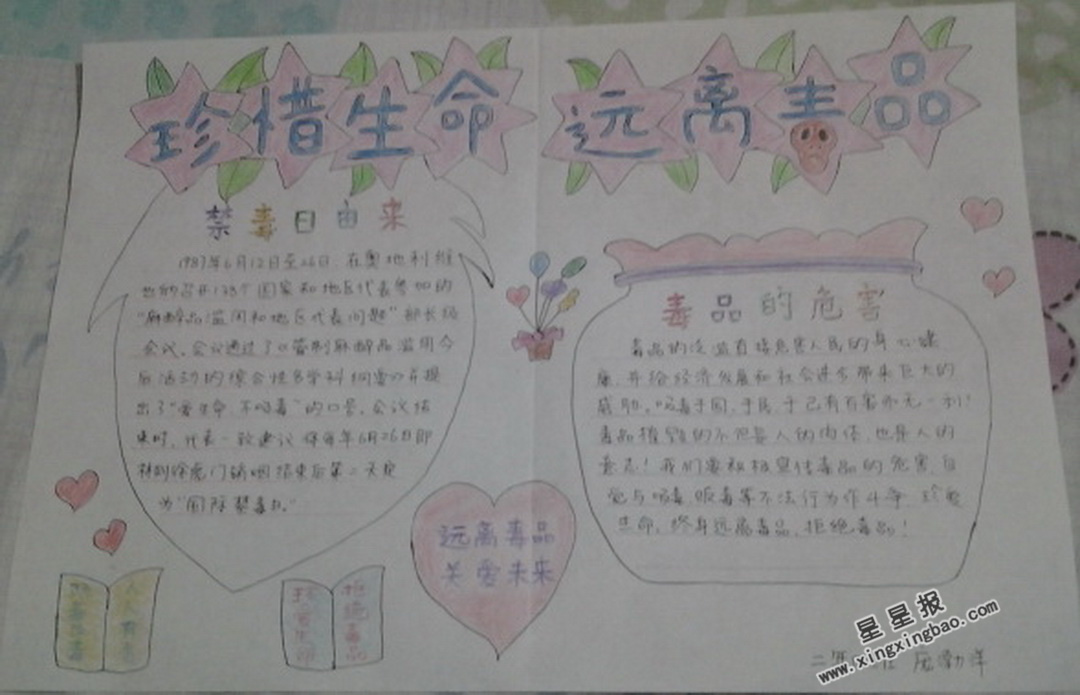 珍惜生命 远离毒品
禁毒日由来
1987年6月12日至26日,在奥地利维
也纳召开138个国家和地区代表参加的
“麻醉品滥用和地区代表问题”部长级
会议。会议通过了《管制麻醉品滥用今
后活动的综合性多学科纲要》并提
出了“爱生命,不吸毒”的口号。会议结
束时,代表一致建议将每年6月26日即
林则徐虎门销烟结束后第二天定
为“国际禁毒日。”
毒品的危害
毒品的泛滥直接危害人民的身心健
康,并给经济发展和社会进步带来巨大的
威胁。吸毒于国、于民、于己有百害而无一利!
毒品摧毁的不仅是人的肉体,也是人的
意志!我们要积极宣传毒品的危害,自
觉与吸毒、贩毒等不法行为作斗争,珍爱
生命,终身远离毒品、拒绝毒品!
远离毒品
关爱未来
人人有责
珍爱生命
拒绝毒品
二年
星星报
www.xingxingbao.com